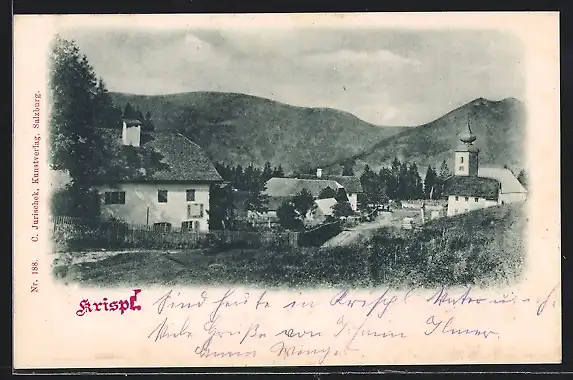 Nr. 188. C. Jurischek, Kunstverlag, Salzburg.
Krispl.
Sind heute in Krispl
Viele Grüße von Johann